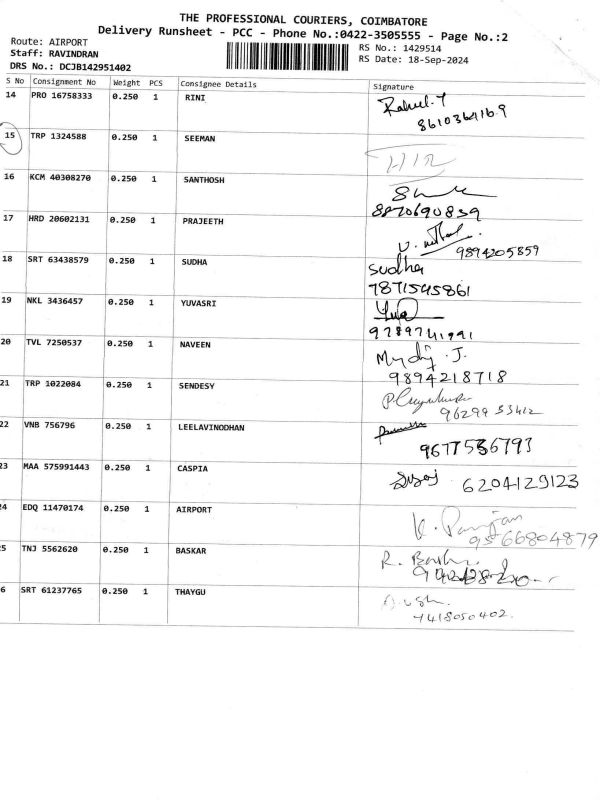 THE PROFESSIONAL COURIERS, COIMBATORE
Delivery Runsheet - PCC - Phone No.:0422-3505555 - Page No.:2
Route: AIRPORT
Staff: RAVINDRAN
DRS No.: DCJB142951402
RS No.: 1429514
RS Date: 18-Sep-2024
S No Consignment No Weight PCS Consignee Details Signature
14 PRO 16758333 0.250 1 RINI Rahul.T
15 TRP 1324588 0.250 1 SEEMAN
16 KCM 40308270 0.250 1 SANTHOSH
8870690839
17 HRD 20602131 0.250 1 PRAJEETH
9894205859
18 SRT 63438579 0.250 1 SUDHA Sudha
7871545861
19 NKL 3436457 0.250 1 YUVASRI
9789741991
20 TVL 7250537 0.250 1 NAVEEN
9894218718
21 TRP 1022084 0.250 1 SENDESY
9629933412
22 VNB 756796 0.250 1 LEELAVINODHAN
9677536793
23 MAA 575991443 0.250 1 CASPIA
6204129123
24 EDQ 11470174 0.250 1 AIRPORT
9566804879
25 TNJ 5562620 0.250 1 BASKAR
26 SRT 61237765 0.250 1 THAYGU
7418050402.